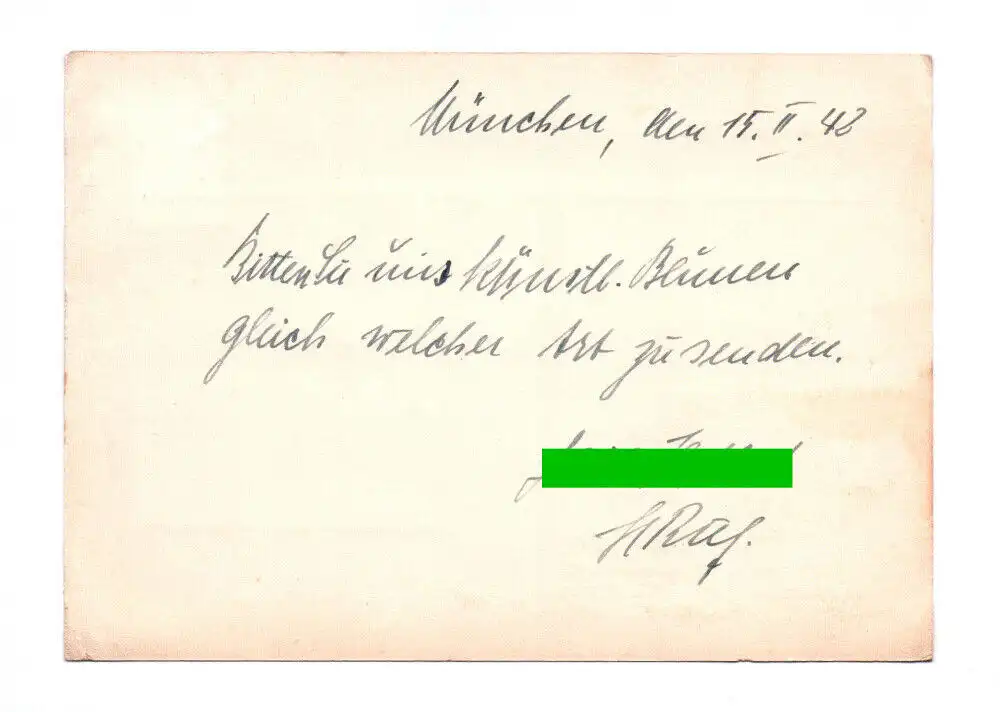 München, den 15. II. 42
Bitten Sie uns künstl. Blumen
gleich welcher Art zu senden.